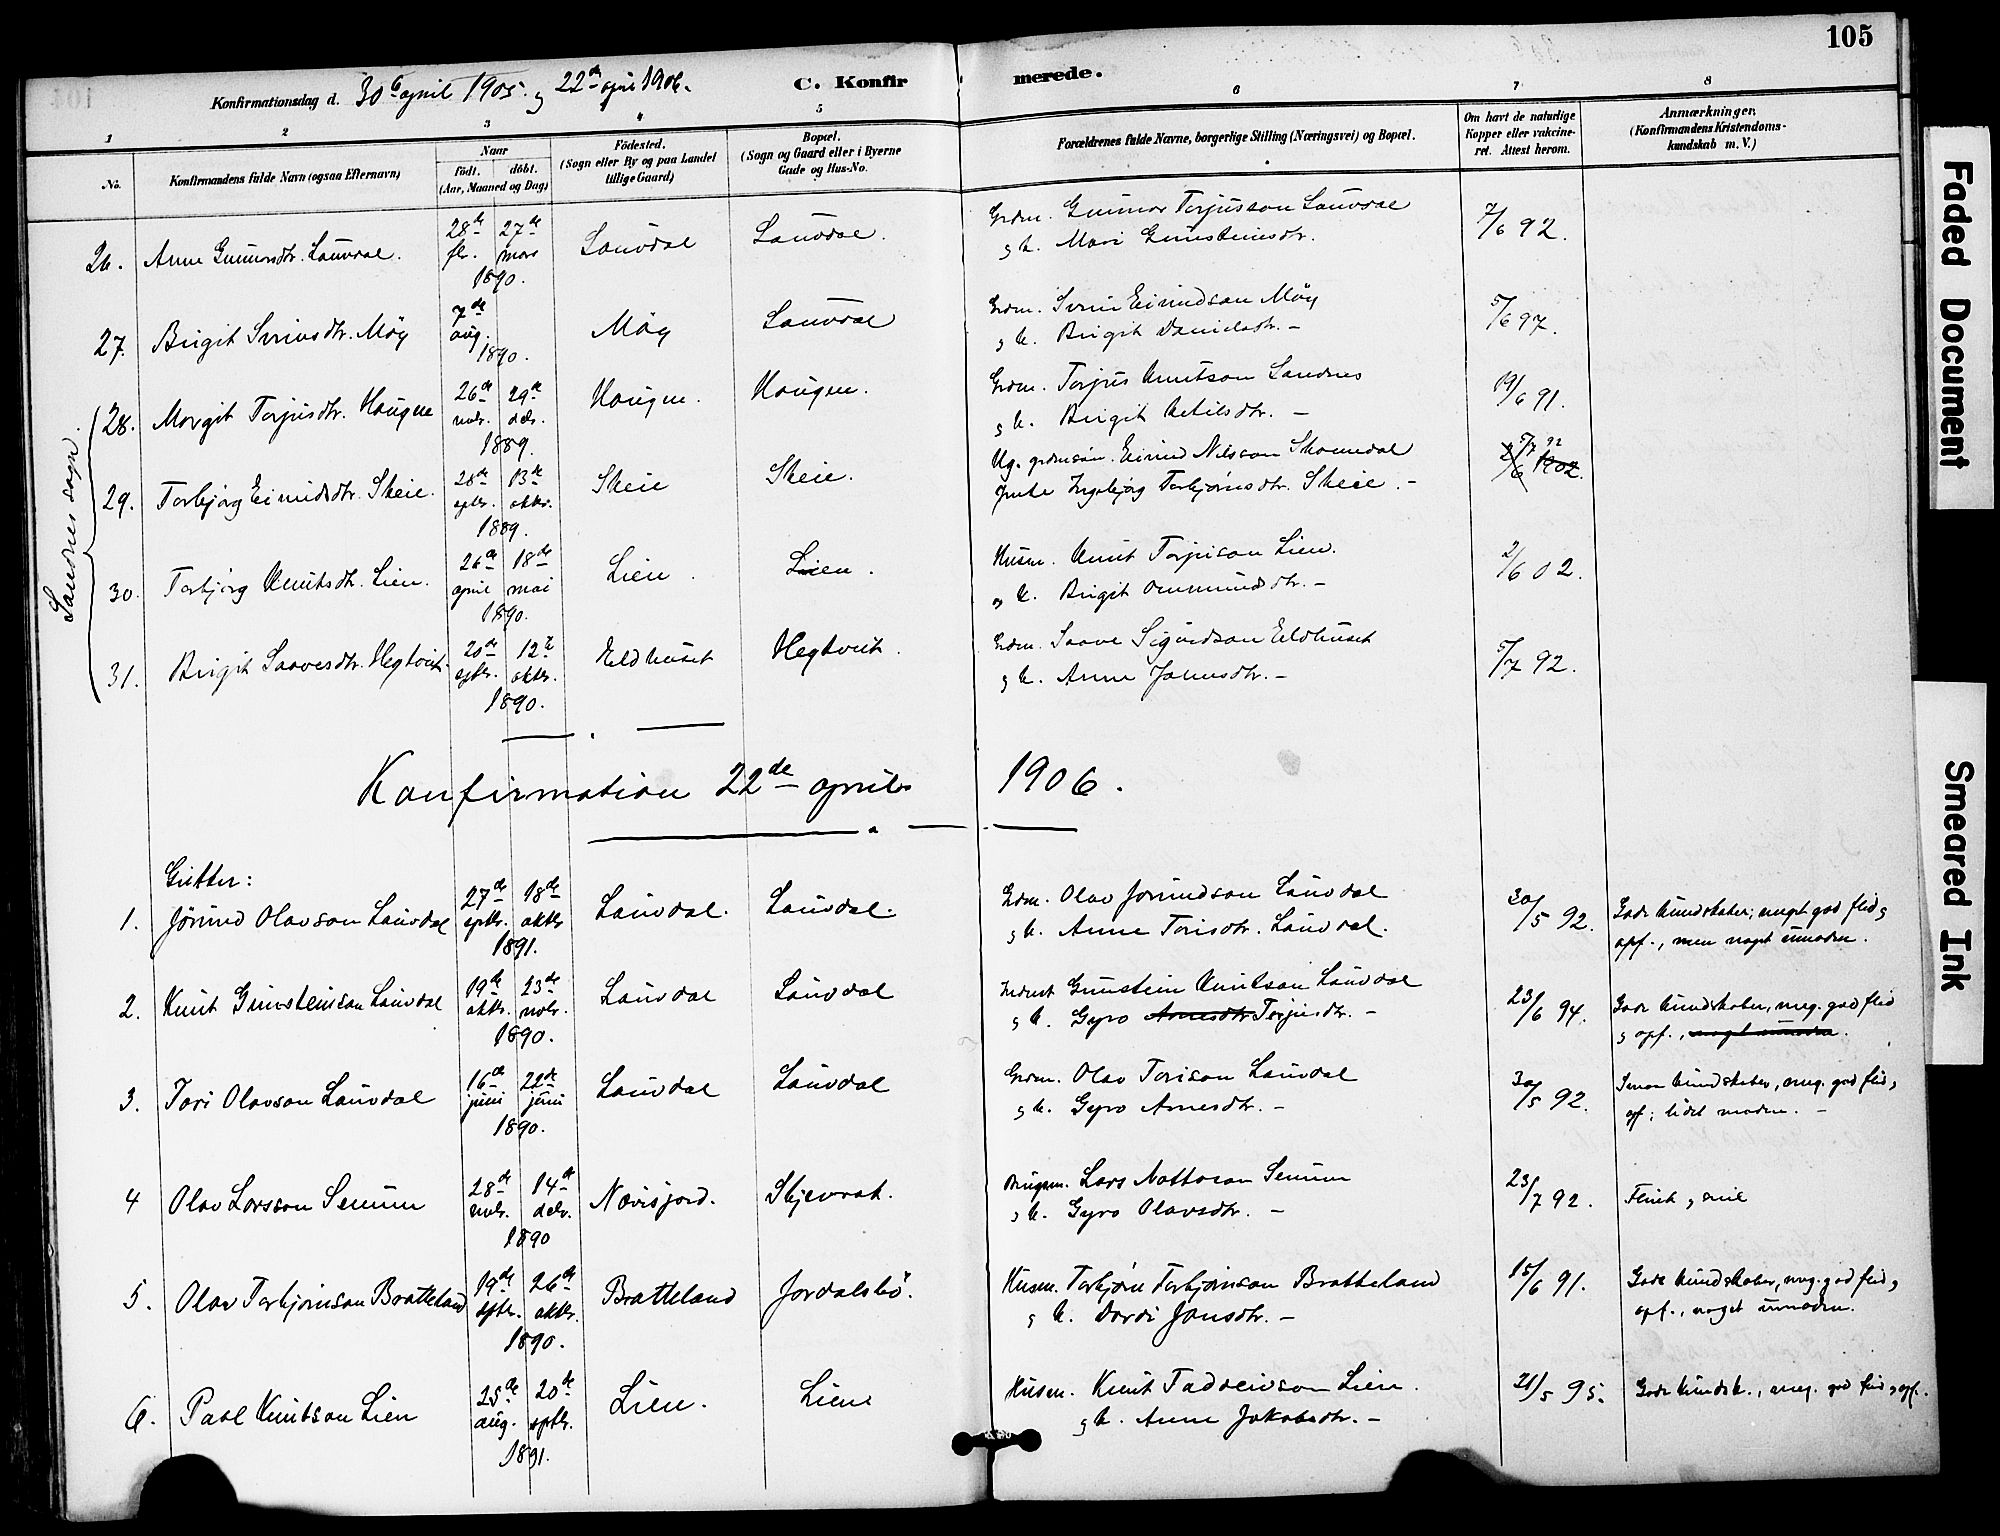 105
Konfirmationsdag d. 30te april 1905 og 22de april 1906.
C. Konfirmerede.
1 2 3 4 5 6 7 8
No.
Konfirmandens fulde Navn (ogsaa Efternavn)
Naar
födt. döbt.
(Aar, Maaned og Dag)
Födested.
(Sogn eller By og paa Landet
tillige Gaard)
Bopæl.
(Sogn og Gaard eller i Byerne
Gade og Hus-No.
Forældrenes fulde Navne, borgerlige Stilling (Næringsvei) og Bopæl.
Om havt de naturlige
Kopper eller vakcine-
ret. Attest herom.
Anmærkninger.
(Konfirmandens Kristendoms-
kundskab m. V.)
26. Anne Gunnarsdtr. Lauvdal. 28de fbr. 27de mars 1890. Lauvdal Lauvdal. Grdm. Gunnar Torjusson Lauvdal
og k. Mari Gunsteinsdtr. 7/6 92.
27. Birgit Sveinsdtr. Möy 7de aug. 1890. Möy Lauvdal Grdm. Svein Eivindson Möy
og k. Birgit Danielsdtr. – 5/6 97.
Sandnes sogn.
28. Margit Torjusdtr. Haugen 26de novbr. 29de debr. 1889. Haugen. Haugen. Grdm. Torjus Knutson Sandnes
og k. Birgit Ketilsdtr. – 19/6 91.
29. Torbjørg Eivindsdtr. Skeie. 28de septbr. 13de oktbr. 1889. Skeie Skeie. Ug. grdmsøn. Eivind Nilsson Skomedal
pike Ingebjørg Torbjørnsdtr. Skeie. – 2/6 1902. 5/7 92
30. Torbjørg Knutsdtr. Lien. 26de april 18de mai 1890. Lien. Lien. Husm. Knut Torjuson Lien.
og k. Birgit Ommundsdtr. – 2/6 02.
31. Birgit Saavesdtr. Hegtveit. 20de septbr. 12te oktbr. 1890. Eldhuset Hegtveit. Grdm. Saave Sigurdson Eldhuset
og k. Anne Jonsdtr. – 5/7 92.
Konfirmation 22de april 1906.
Gutter:
1. Jørund Olavson Lauvdal 27de septbr. 18de oktbr 1891. Lauvdal. Lauvdal. Grdm. Olav Jørundson Lauvdal
og k. Anne Torisdtr. Lauvdal. 30/5 92. Gode kundskaber; meget god flid og
opf., men noget umoden.
2. Knut Gunsteinson Lauvdal 19de oktbr. 23de novbr. 1890. Lauvdal Lauvdal Gunstein Knutson Lauvdal
og k. Gyro Arnesdtr Torjusdtr. – 23/6 94. Gode kundskaber, meg. god flid
og opf., noget umoden.
3. Tori Olavson Lauvdal 16de juni 22de juni 1890. Lauvdal Lauvdal Grdm. Olav Torison Lauvdal
og k. Gyro Arnesdtr. – 30/5 92. Smaa kundskaber, meg. god flid og
opf; lidet moden. –
4 Olav Larsson Senum 28de novbr. 14de debr. 1890 Nævisjord. Skjevrak. Brugsm. Lars Nottoson Senum
og k. Gyro Olavsdtr. – 23/7 92. Flink og snil
5. Olav Torbjørnson Bratteland 19de septbr. 26de oktbr. 1890. Bratteland Jordalsbö. Husm. Torbjørn Torbjørnson Bratteland
og k. Dordi Jonsdtr. – 15/6 91. Gode kundskaber, meg. god flid og
opf., noget umoden.
6. Paal Knutson Lien 25de aug. 20de septbr. 1891. Lien. Lien Husm. Knut Taddeivson Lien.
og k. Anne Jakobsdtr. – 21/5 95. Gode kundsk., meg. god flid og opf.
Faded Document
Smeared Ink